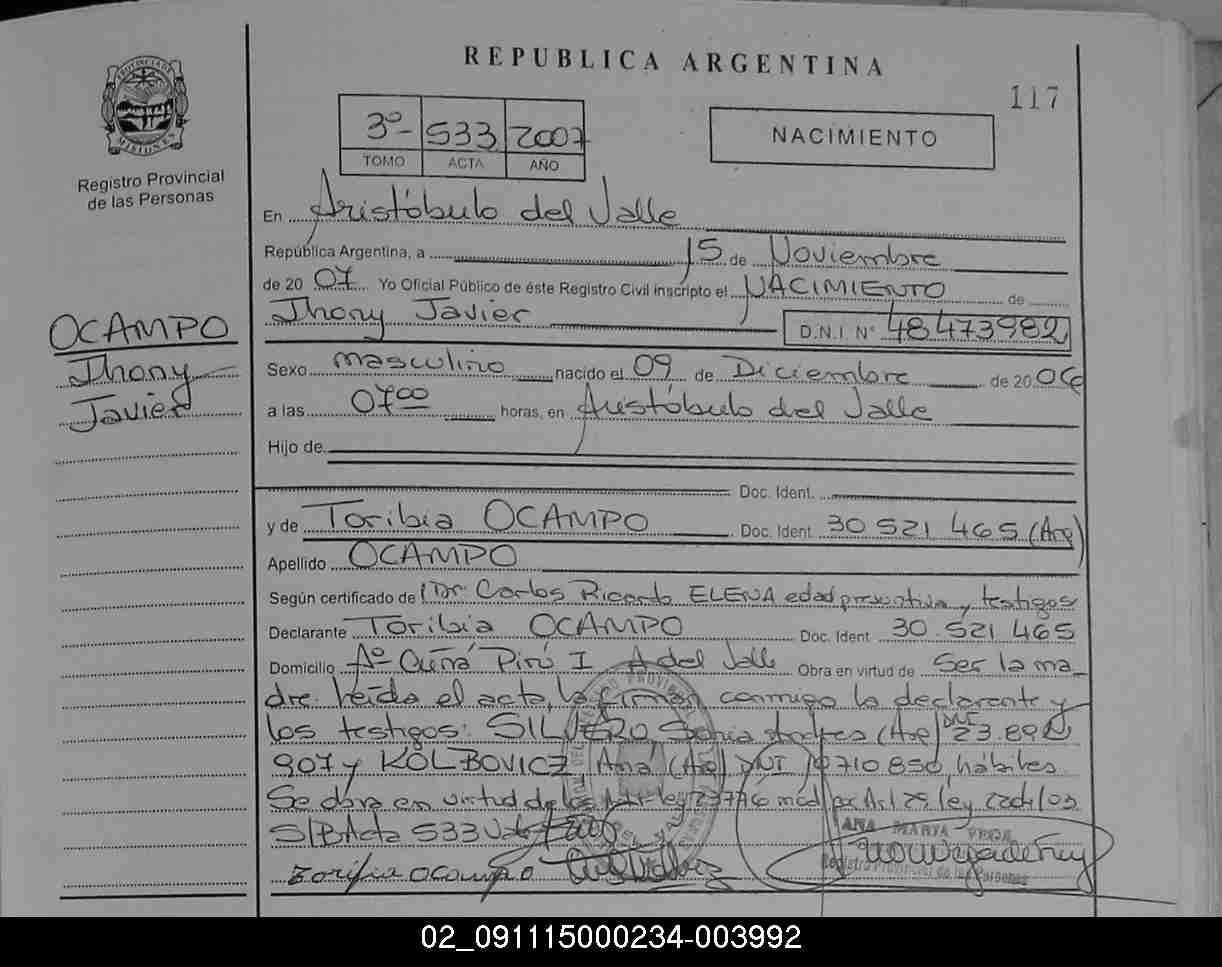 REPUBLICA ARGENTINA
117
PROVINCIA DE
MISIONES
Registro Provincial
de las Personas
3º- 533 2007
TOMO ACTA AÑO
NACIMIENTO
En Aristóbulo del Valle
República Argentina, a 15 de Noviembre
de 20 07 Yo Oficial Público de éste Registro Civil inscripto el NACIMIENTO de
Jhony Javier D.N.I. Nº 48473982
OCAMPO
Jhony
Javier
Sexo masculino nacido el 09 de Diciembre de 20 06
a las 07 00 horas, en Aristóbulo del Valle
Hijo de
Doc. Ident.
y de Toribia OCAMPO Doc. Ident. 30 521 465 (Arg)
Apellido OCAMPO
Según certificado de Dr. Carlos Ricardo ELENA edad presuntiva y testigos
Declarante Toribia OCAMPO Doc. Ident 30.521 465
Domicilio Aº Cuñá Pirú I A del Valle Obra en virtud de Ser la ma_
dre. Leída el acta, la firman conmigo la declarante y
los testigos: SILVERO Sonia (Arg) DNI 23.892
907 y KOLBOVICZ, Ana (Arg) DNI 710 850, hábiles
Se obra en virtud de ley med por ley
S/B Acta 533
Toribia Ocampo
ANA MARIA VEGA
Registro Provincial de las Personas
02_091115000234-003992